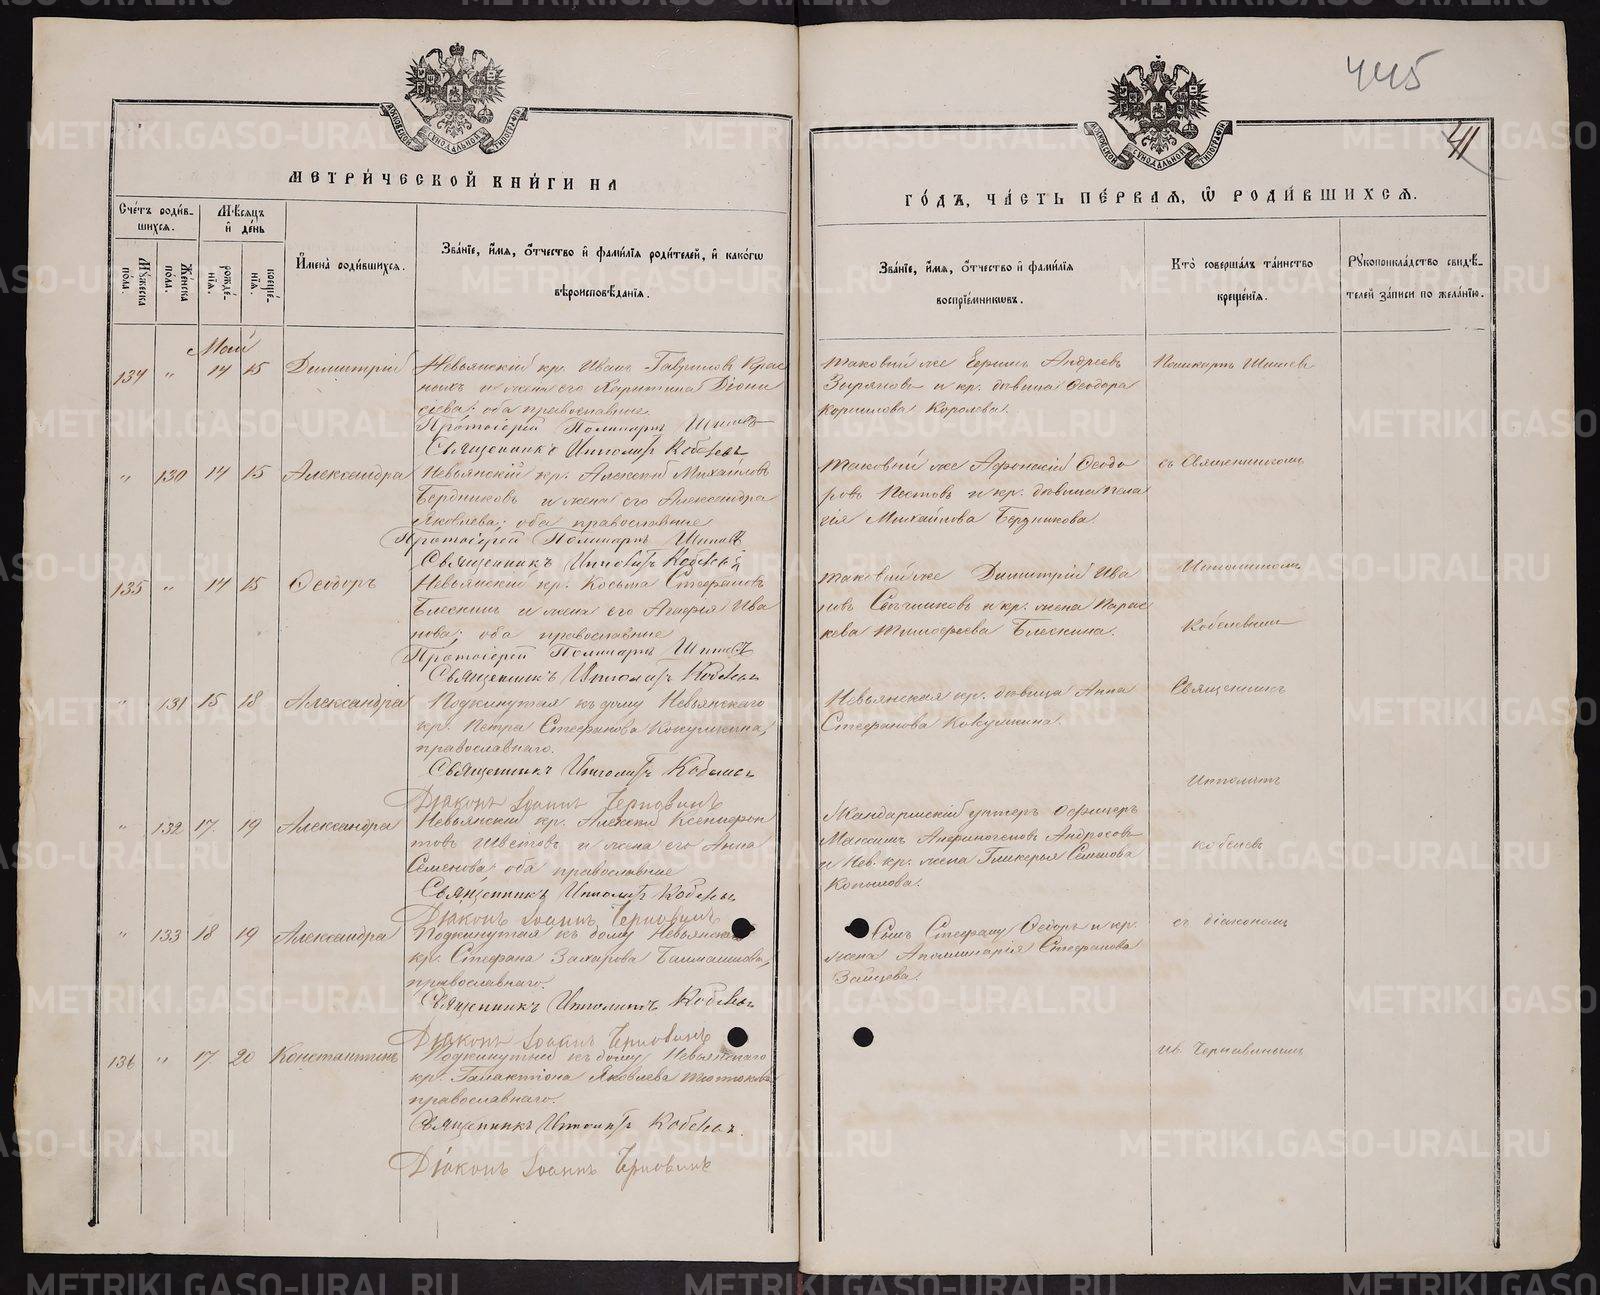 445
41
МОСКОВСКОЙ СУНОДАЛЬНОЙ ТИПОГРАФІИ
МОСКОВСКОЙ СУНОДАЛЬНОЙ ТИПОГРАФІИ
МЕТРИ́ЧЕСКОЙ КНИ́ГИ НА
ГО́ДЪ, ЧА́СТЬ ПЕ́РВАЯ, Ѽ РОДИ́ВШИХСЯ.
Сче́тъ роди́в-
шихся.
Мꙋ́жеска по́ла.
Же́нска по́ла.
Мѣ́сяцъ
и́ де́нь
рожде́-
нія.
креще́-
нія.
И҆мена̀ роди́вшихся.
Зва́ніе, и҆́мя, ѻ҆́тчество и҆ фами́лія роди́телей, и҆ како́гѡ
вѣроисповѣ́данія.
Зва́ніе, и҆́мя, ѻ҆́тчество и҆ фами́лія
воспріе́мникѡвъ.
Кто̀ соверша́лъ та́инство
креще́нія.
Рꙋкоприкла́дство свидѣ́-
телей за́писи по жела́нію.
Май
134 " 14 15 Димитрій
Невьянскій кр. Иванъ Гавриловъ Крас
ныхъ и жена его Харитина Діони
сіева; оба православные.
Протоіерей Поликарпъ Шишевъ
Священникъ Ипполитъ Кобелевъ
Таковый же Ефимъ Андреевъ
Зыряновъ и кр. дѣвица Ѳеодора
Корнилова Королева.
Поликарпъ Шишев
" 130 14 15 Александра
Невьянскій кр. Алексѣй Михайловъ
Бердниковъ и жена его Александра
Яковлева; оба православные
Протоіерей Поликарпъ Шишевъ
Священникъ Ипполитъ Кобелевъ
Таковый же Афонасій Ѳеодо
ровъ Постовъ и кр. дѣвица Пела
гія Михайлова Бердникова.
съ Священникомъ
135 " 14 15 Ѳеодоръ
Невьянскій кр. Косьма Стефановъ
Блескинъ и жена его Агафья Ива
нова; оба православные
Протоіерей Поликарпъ Шишевъ
Священникъ Ипполитъ Кобелевъ
Таковый же Димитрій Ива
новъ и кр. жена Парас
кева Тимофеева Блескина.
Ипполитомъ
Кобелевымъ
" 131 15 18 Александра
Подкинутая къ дому Невьянскаго
кр. Петра Стефанова Кокушкина,
православнаго.
Священникъ Ипполитъ Кобелевъ
Діаконъ Іоаннъ Черновинъ
Невьянская кр. дѣвица Анна
Стефанова Кокушкина.
Священникъ
Ипполитъ
" 132 17. 19 Александра
Невьянскій кр. Алексѣй Ксенофон
товъ Шветовъ и жена его Анна
Семенова; оба православные
Священникъ Ипполитъ Кобелевъ
Діаконъ Іоаннъ Черновинъ
Жандармскій унтеръ офицеръ
Максимъ Анфиногеновъ Андросовъ
и Нев. кр. жена Гликерья Семенова
Копылова.
Кобелевъ
" 133 18 19 Александра
Подкинутая къ дому Невьянскаго
кр. Стефана Захарова Балташева,
православнаго.
Священникъ Ипполитъ Кобелевъ
Діаконъ Іоаннъ Черновинъ
Сынъ Стефану Ѳедоръ и кр.
жена Аполлинарія Стефанова
Зайцева.
съ діакономъ
136 " 17. 20 Константинъ
Подкинутый къ дому Невьянскаго
кр. Галактіона Яковлева
православнаго.
Священникъ Ипполитъ Кобелевъ.
Діаконъ Іоаннъ Черновинъ
Ив. Черновинымъ
METRIKI.GASO-URAL.RU